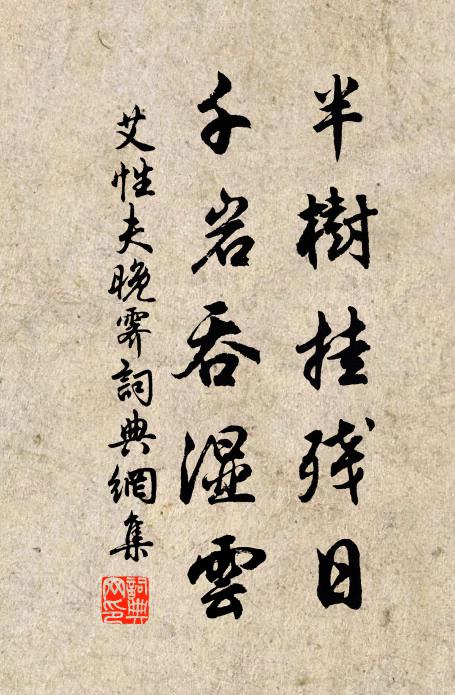 半樹挂残日
千岩吞湿雲
艾性夫晚霽詞典網集
詞典網印